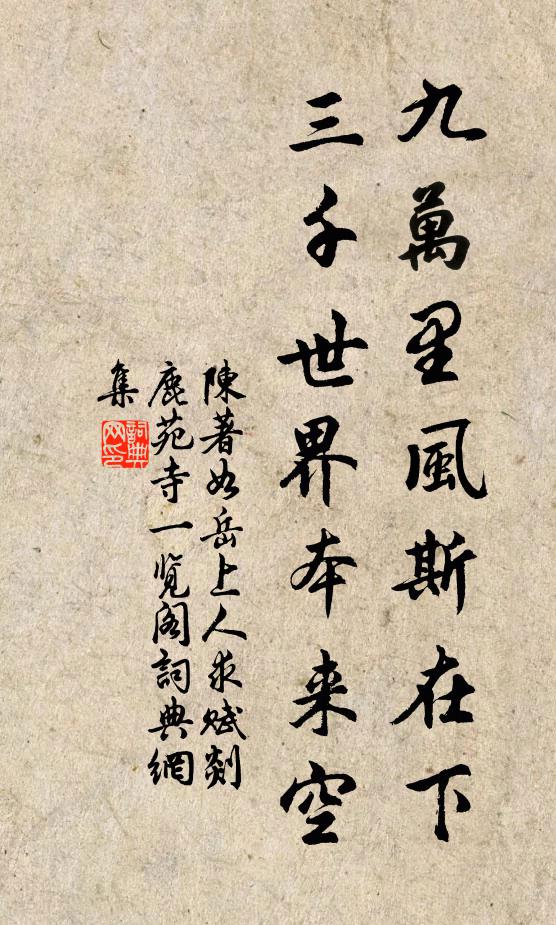 九萬里風斯在下
三千世界本来空
陳著如岳上人求賦剡
鹿苑寺一覧阁詞典網
集
詞典
网印